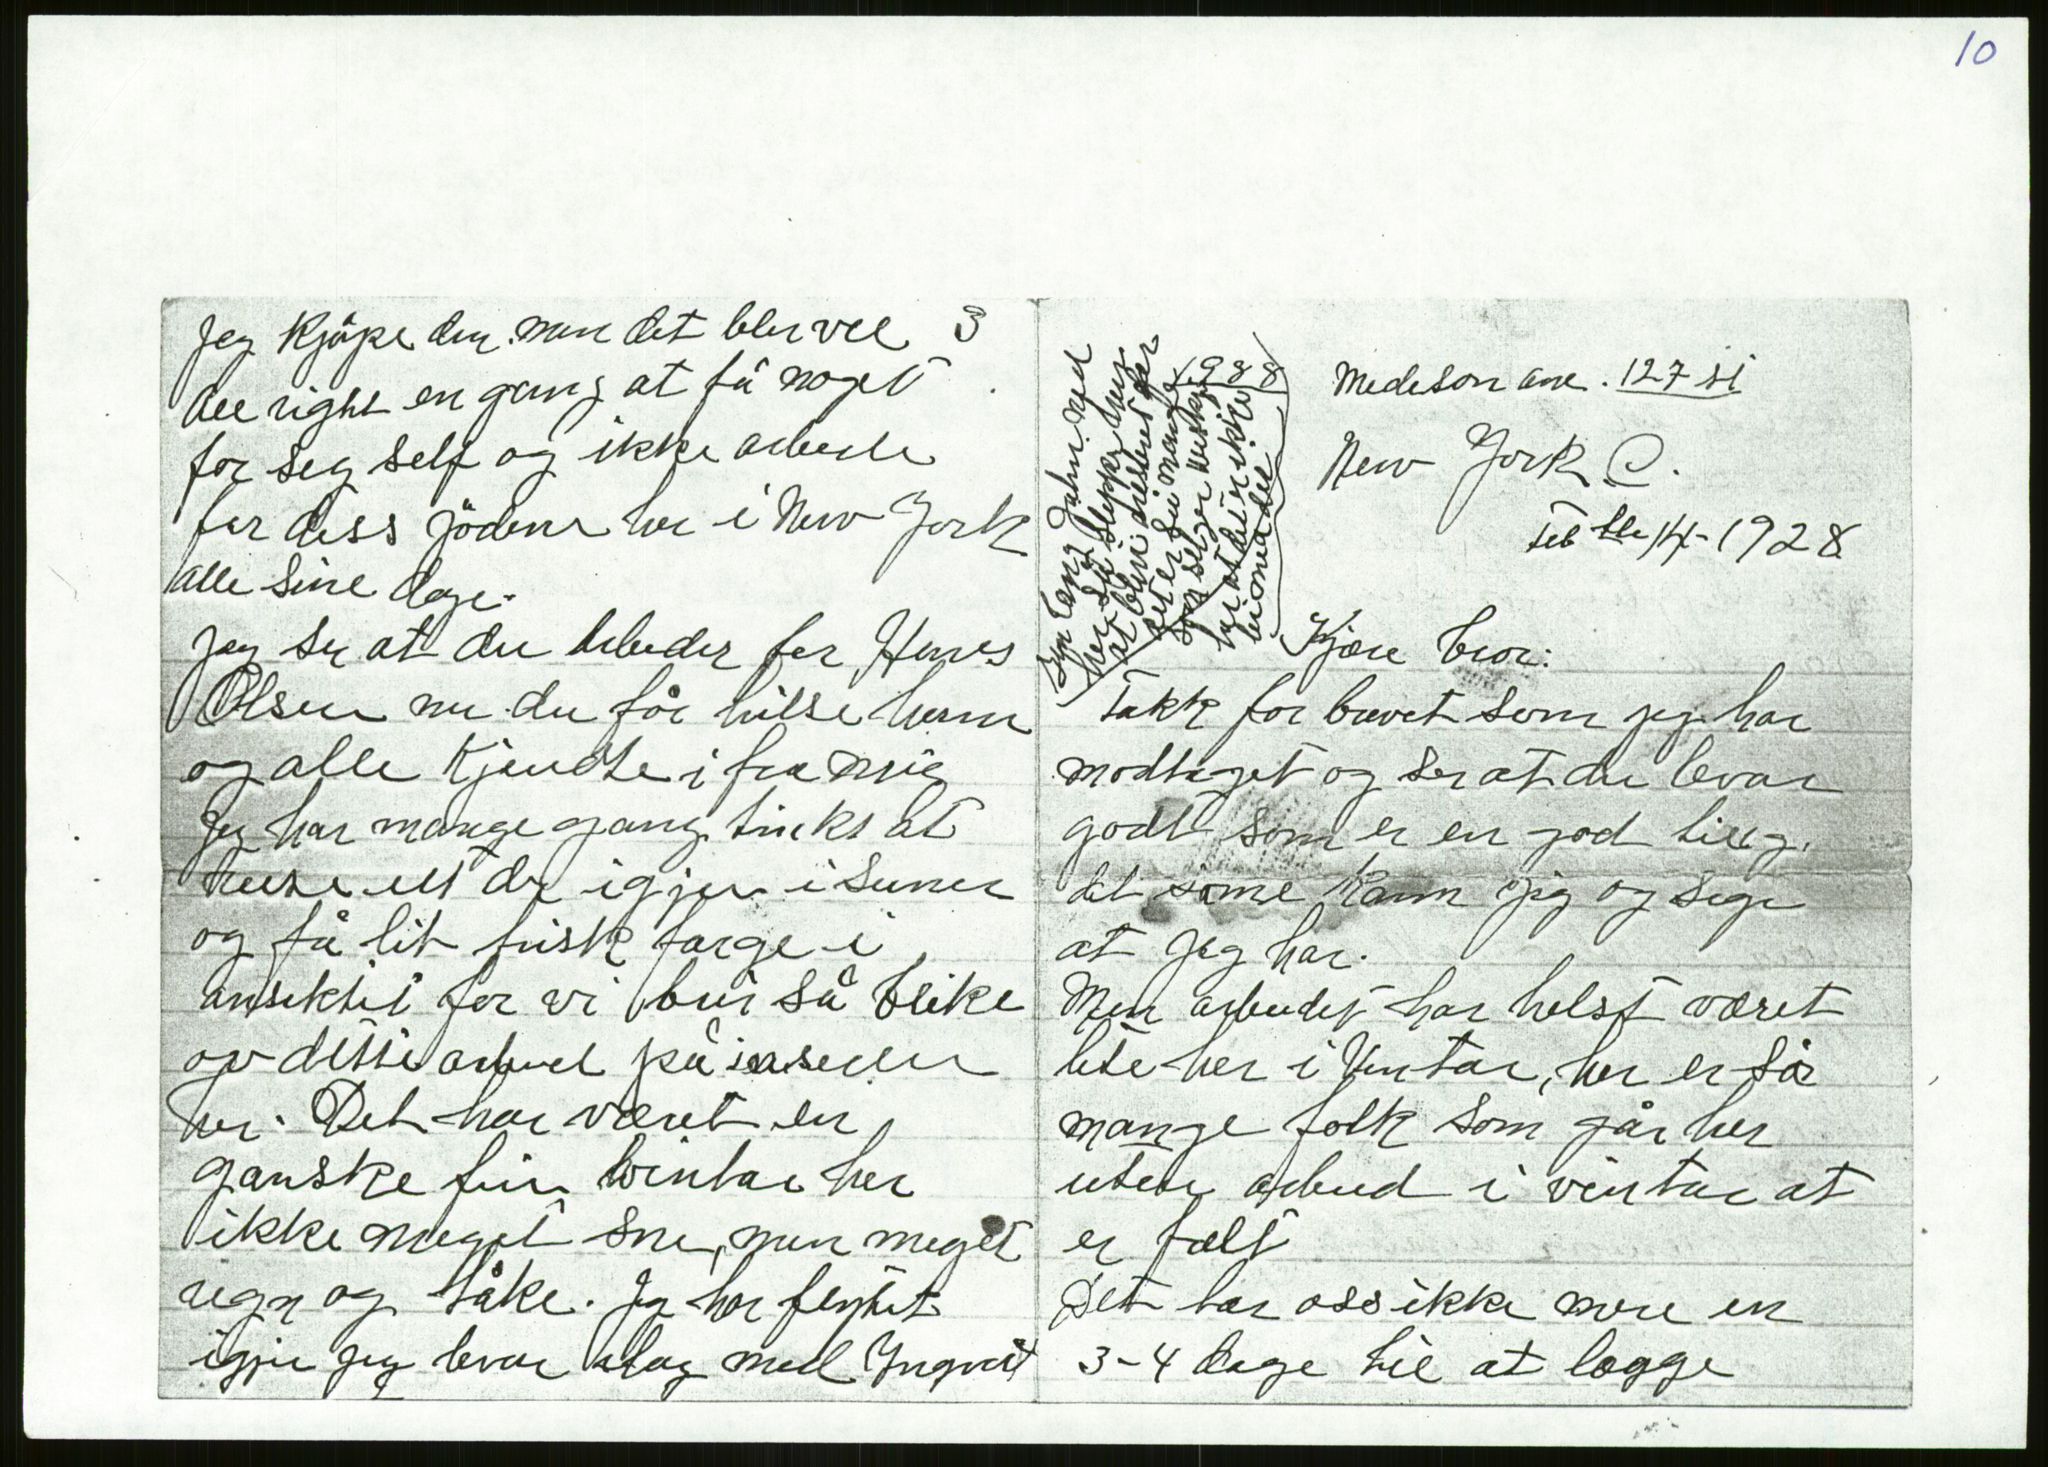 10
Jeg kjöpe den. men det bler vel 3
all right en gang at få noget
for seg self og ikke arbeide
for diss jödene her i New York
alle sine dage.
Jeg ser at du arbeider for Hans
Olsen nu du får hilse ham
og alle kjendte i fra mig
Jeg har mange gang tinkt at
reise ut der igjen i sumer
og få lit frisk farge i
ansiktet for vi blir så bleike
av dette arbeid på insiden
her. Det har været en
ganske fin vintar her
ikke meget sne, men meget
regn og tåke. Jg har flyttet
igjen jeg levar ilag med Ingvart
1988 Medeson ave. 127 st
New York C.
Feb 14-1928
John ned
her så
at blive
det er så mange
som
for at det er ikke
Kjære bror:
Takk for brevet som jeg har
modtaget og ser at du levar
godt som er en god ting.
det same kann jeg og sige
at jeg har.
Men arbeidet har helst været
lite her i Vintar, her er så
mange folk som går her
uten arbeid i vintar at
er fælt
Det tar oss ikke mere en
3-4 dage til at lægge